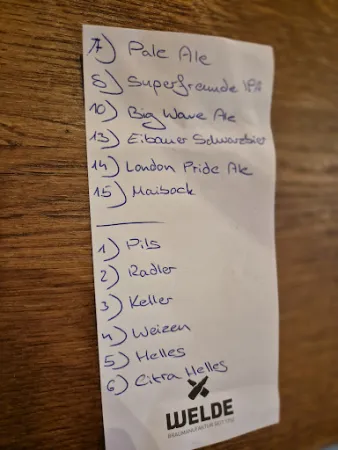 7) Pale Ale
8) Superfreunde IPA
10) Big Wave Ale
13) Eibauer Schwarzbier
14) London Pride Ale
15) Maibock
1) Pils
2) Radler
3) Keller
4) Weizen
5) Helles
6) Citra Helles
WELDE
BRAUMANUFAKTUR SEIT 1752